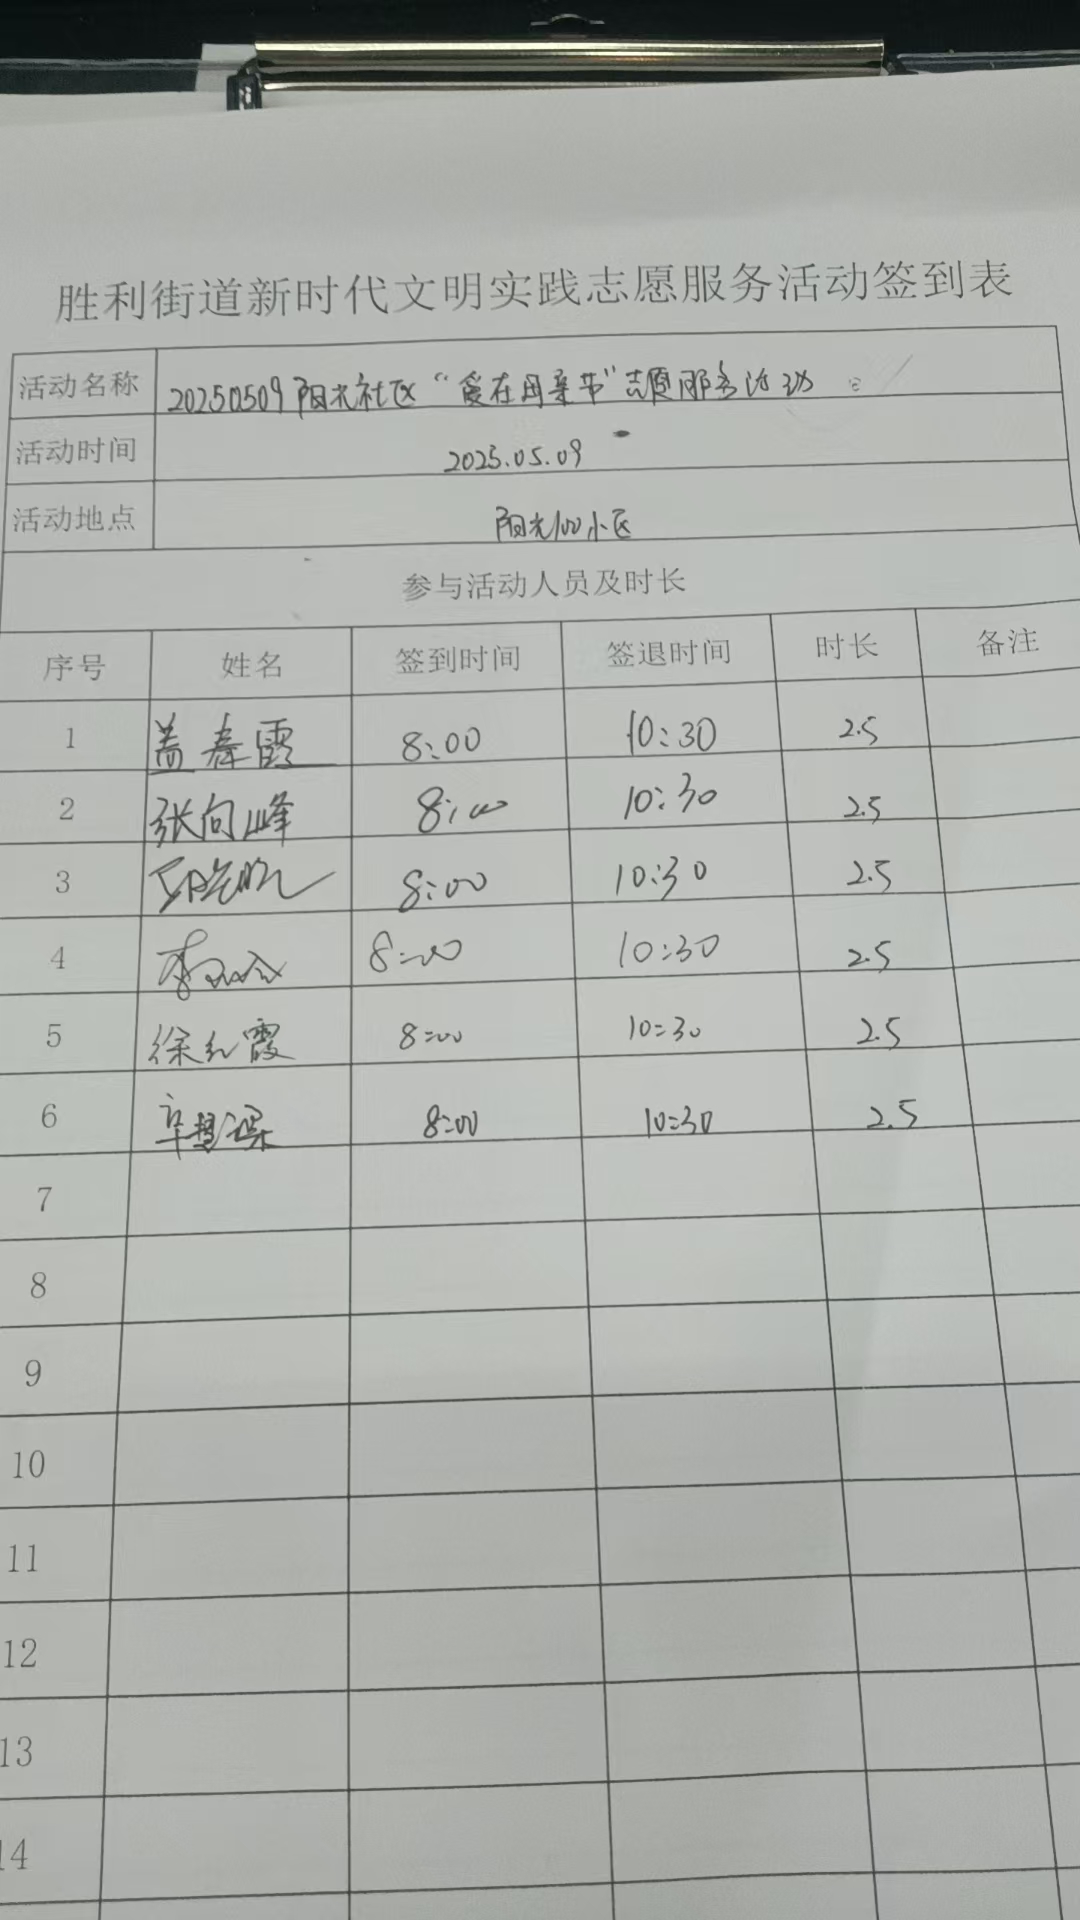 胜利街道新时代文明实践志愿服务活动签到表
活动名称 20250509阳光社区“爱在母亲节”志愿服务活动
活动时间 2025.05.09
活动地点 阳光100小区
参与活动人员及时长
序号 姓名 签到时间 签退时间 时长 备注
1 盖春霞 8:00 10:30 2.5
2 张向峰 8:00 10:30 2.5
3 8:00 10:30 2.5
4 李 8:00 10:30 2.5
5 徐红霞 8:00 10:30 2.5
6 辛 8:00 10:30 2.5
7
8
9
10
11
12
13
14